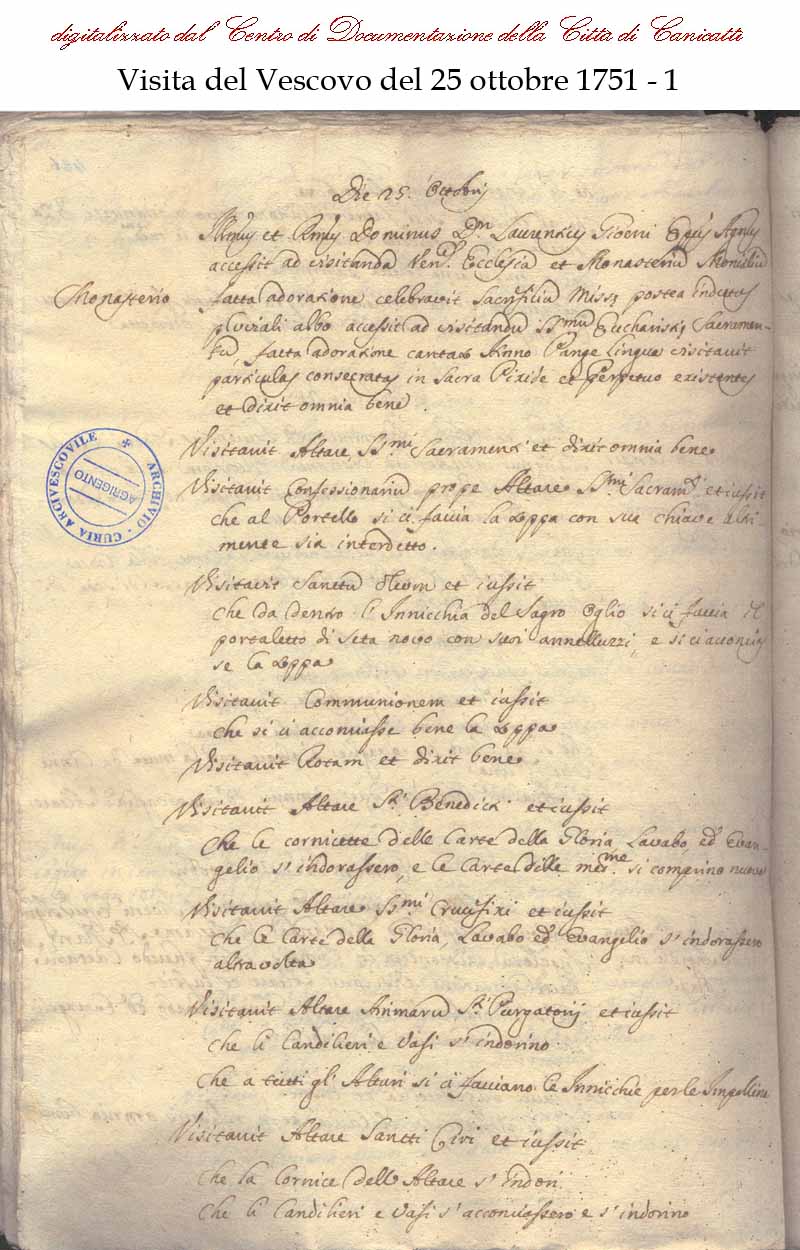 digitalizzato dal Centro di Documentazione della Città di Canicattì
Visita del Vescovo del 25 ottobre 1751 - 1
Die 25. Octobris
Illmus et Rmus Dominus Dn Laurentius Gioeni Epus Agnus
accessit ad visitanda Ven. Ecclesia et Monasteriu Monialiu
Monasterio
facta adoratione celebravit Sacrificiu Missę postea indutus
pluviali albo accessit ad visitandu SSmu Eucharistię Sacramen-
tu, facta adoratione cantato Hinno Pange lingua visitavit
particulas consecratas in Sacra Pixide et perpetuo existentes
et dixit omnia bene.
Visitavit Altare SSmi Sacramenti et dixit omnia bene
Visitavit Confessionariu prope Altare SSmi Sacramti et iussit
che al Portello si ci faccia la Loppa con sua chiave altri-
mente sia interdetto.
Visitavit Sanctu Oleum et iussit
che da dentro l'Innicchia del Sagro Oglio si ci faccia il
portaletto di seta novo con suoi annelluzzi, e si ci acconcias
se la Loppa
Visitavit Communionem et iussit
che si ci acconciasse bene la Loppa
Visitavit Rotam et dixit bene
Visitavit Altare Sti Benedicti et iussit
Che le cornicette delle Carte della Gloria, Lavabo ed Evan-
gelio s'indorassero, e le Carte delle mesme si comprino nuove
Visitavit Altare SSmi Crucifixi et iussit
Che le Carte della Gloria, Lavabo ed Evangelio s'indorassero
altra volta
Visitavit Altare Animaru Sti Purgatorij et iussit
Che li Candilieri e Vasi s'indorino
Che a tutti gl'Altari si ci facciano le Innicchie per le Impolline
Visitavit Altare Santti Ciri et iussit
Che la Cornice dell'Altare s'indori
Che li Candilieri e Vasi s'acconciassero e s'indorino
ARCHIVIO - CURIA ARCIVESCOVILE
AGRIGENTO